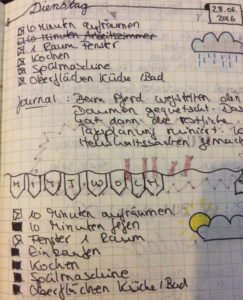 Dienstag
28.06.
2016
10 Minuten aufräumen
10 Minuten Arbeitszimmer
1 Raum Fenster
Kochen
Spülmaschine
Oberflächen Küche/Bad
Journal: Beim Pferd den
Daumen gequetscht. Das
hat dann die restliche
Tagplanung ruiniert.
Haushaltssachen gemacht
MITTWOCH
10 Minuten aufräumen
10 Minuten fegen
Fenster 1 Raum
Einkaufen
Kochen
Spülmaschine
Oberflächen Küche/Bad